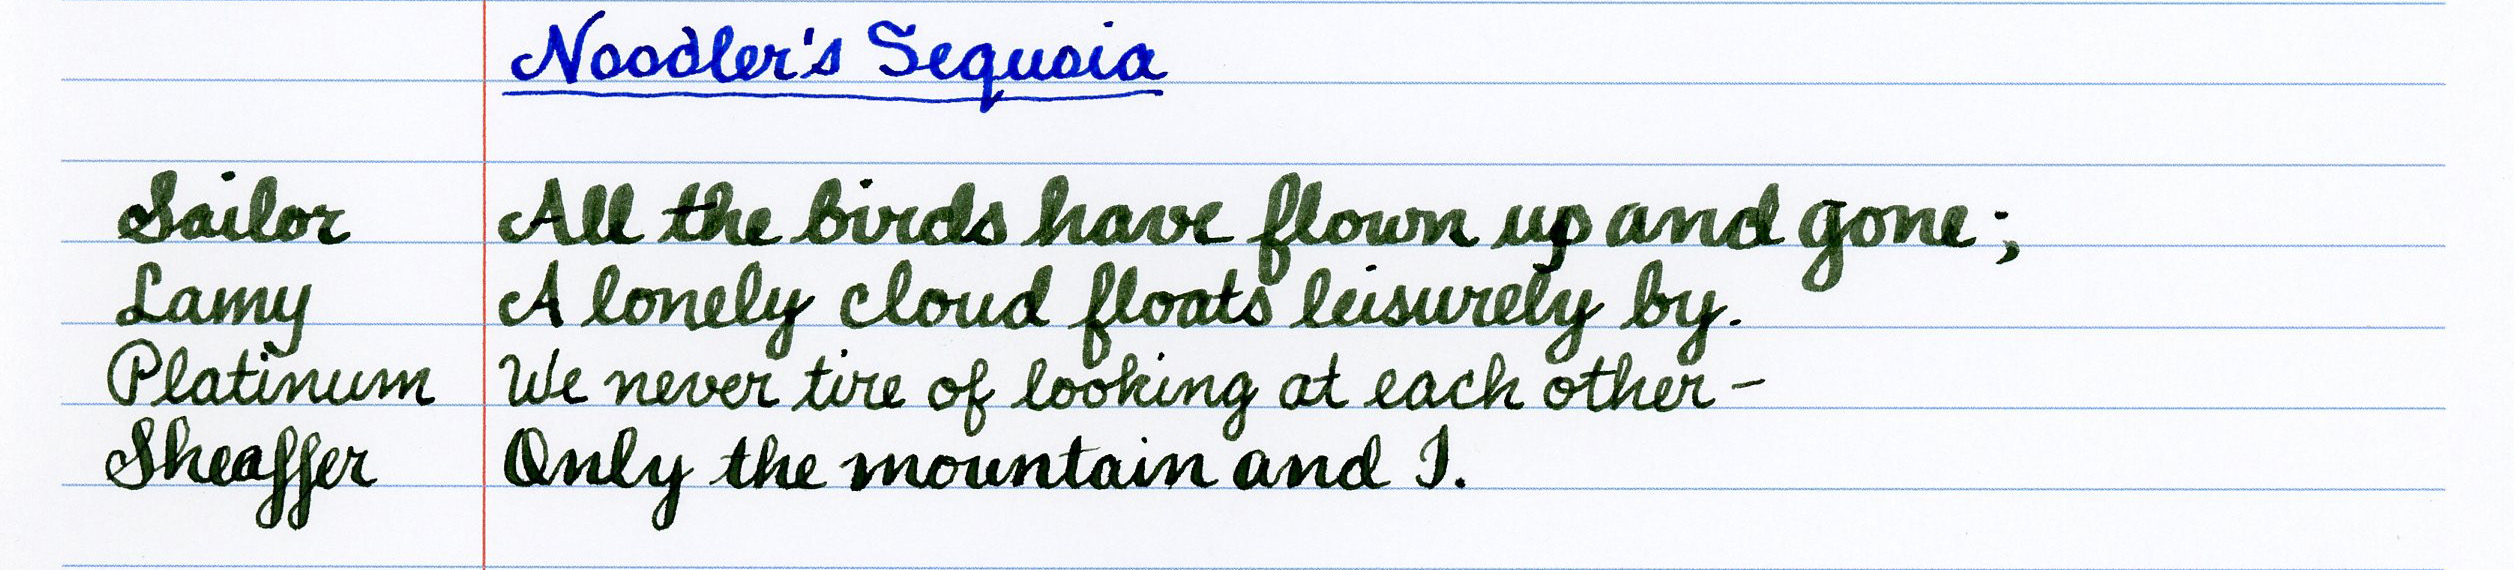 Noodler's Sequoia
Sailor All the birds have flown up and gone;
Lamy A lonely cloud floats leisurely by.
Platinum We never tire of looking at each other-
Sheaffer Only the mountain and I.